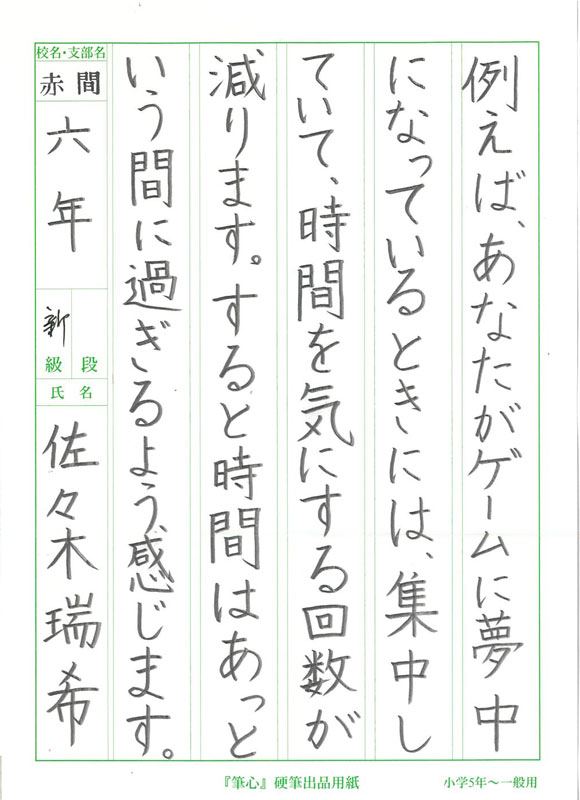 例えば、あなたがゲームに夢中
になっているときには、集中し
ていて、時間を気にする回数が
減ります。すると時間はあっと
いう間に過ぎるよう感じます。
校名・支部名
赤間
六年
新
級 段
氏 名
佐々木瑞希
『筆心』硬筆出品用紙
小学5年～一般用